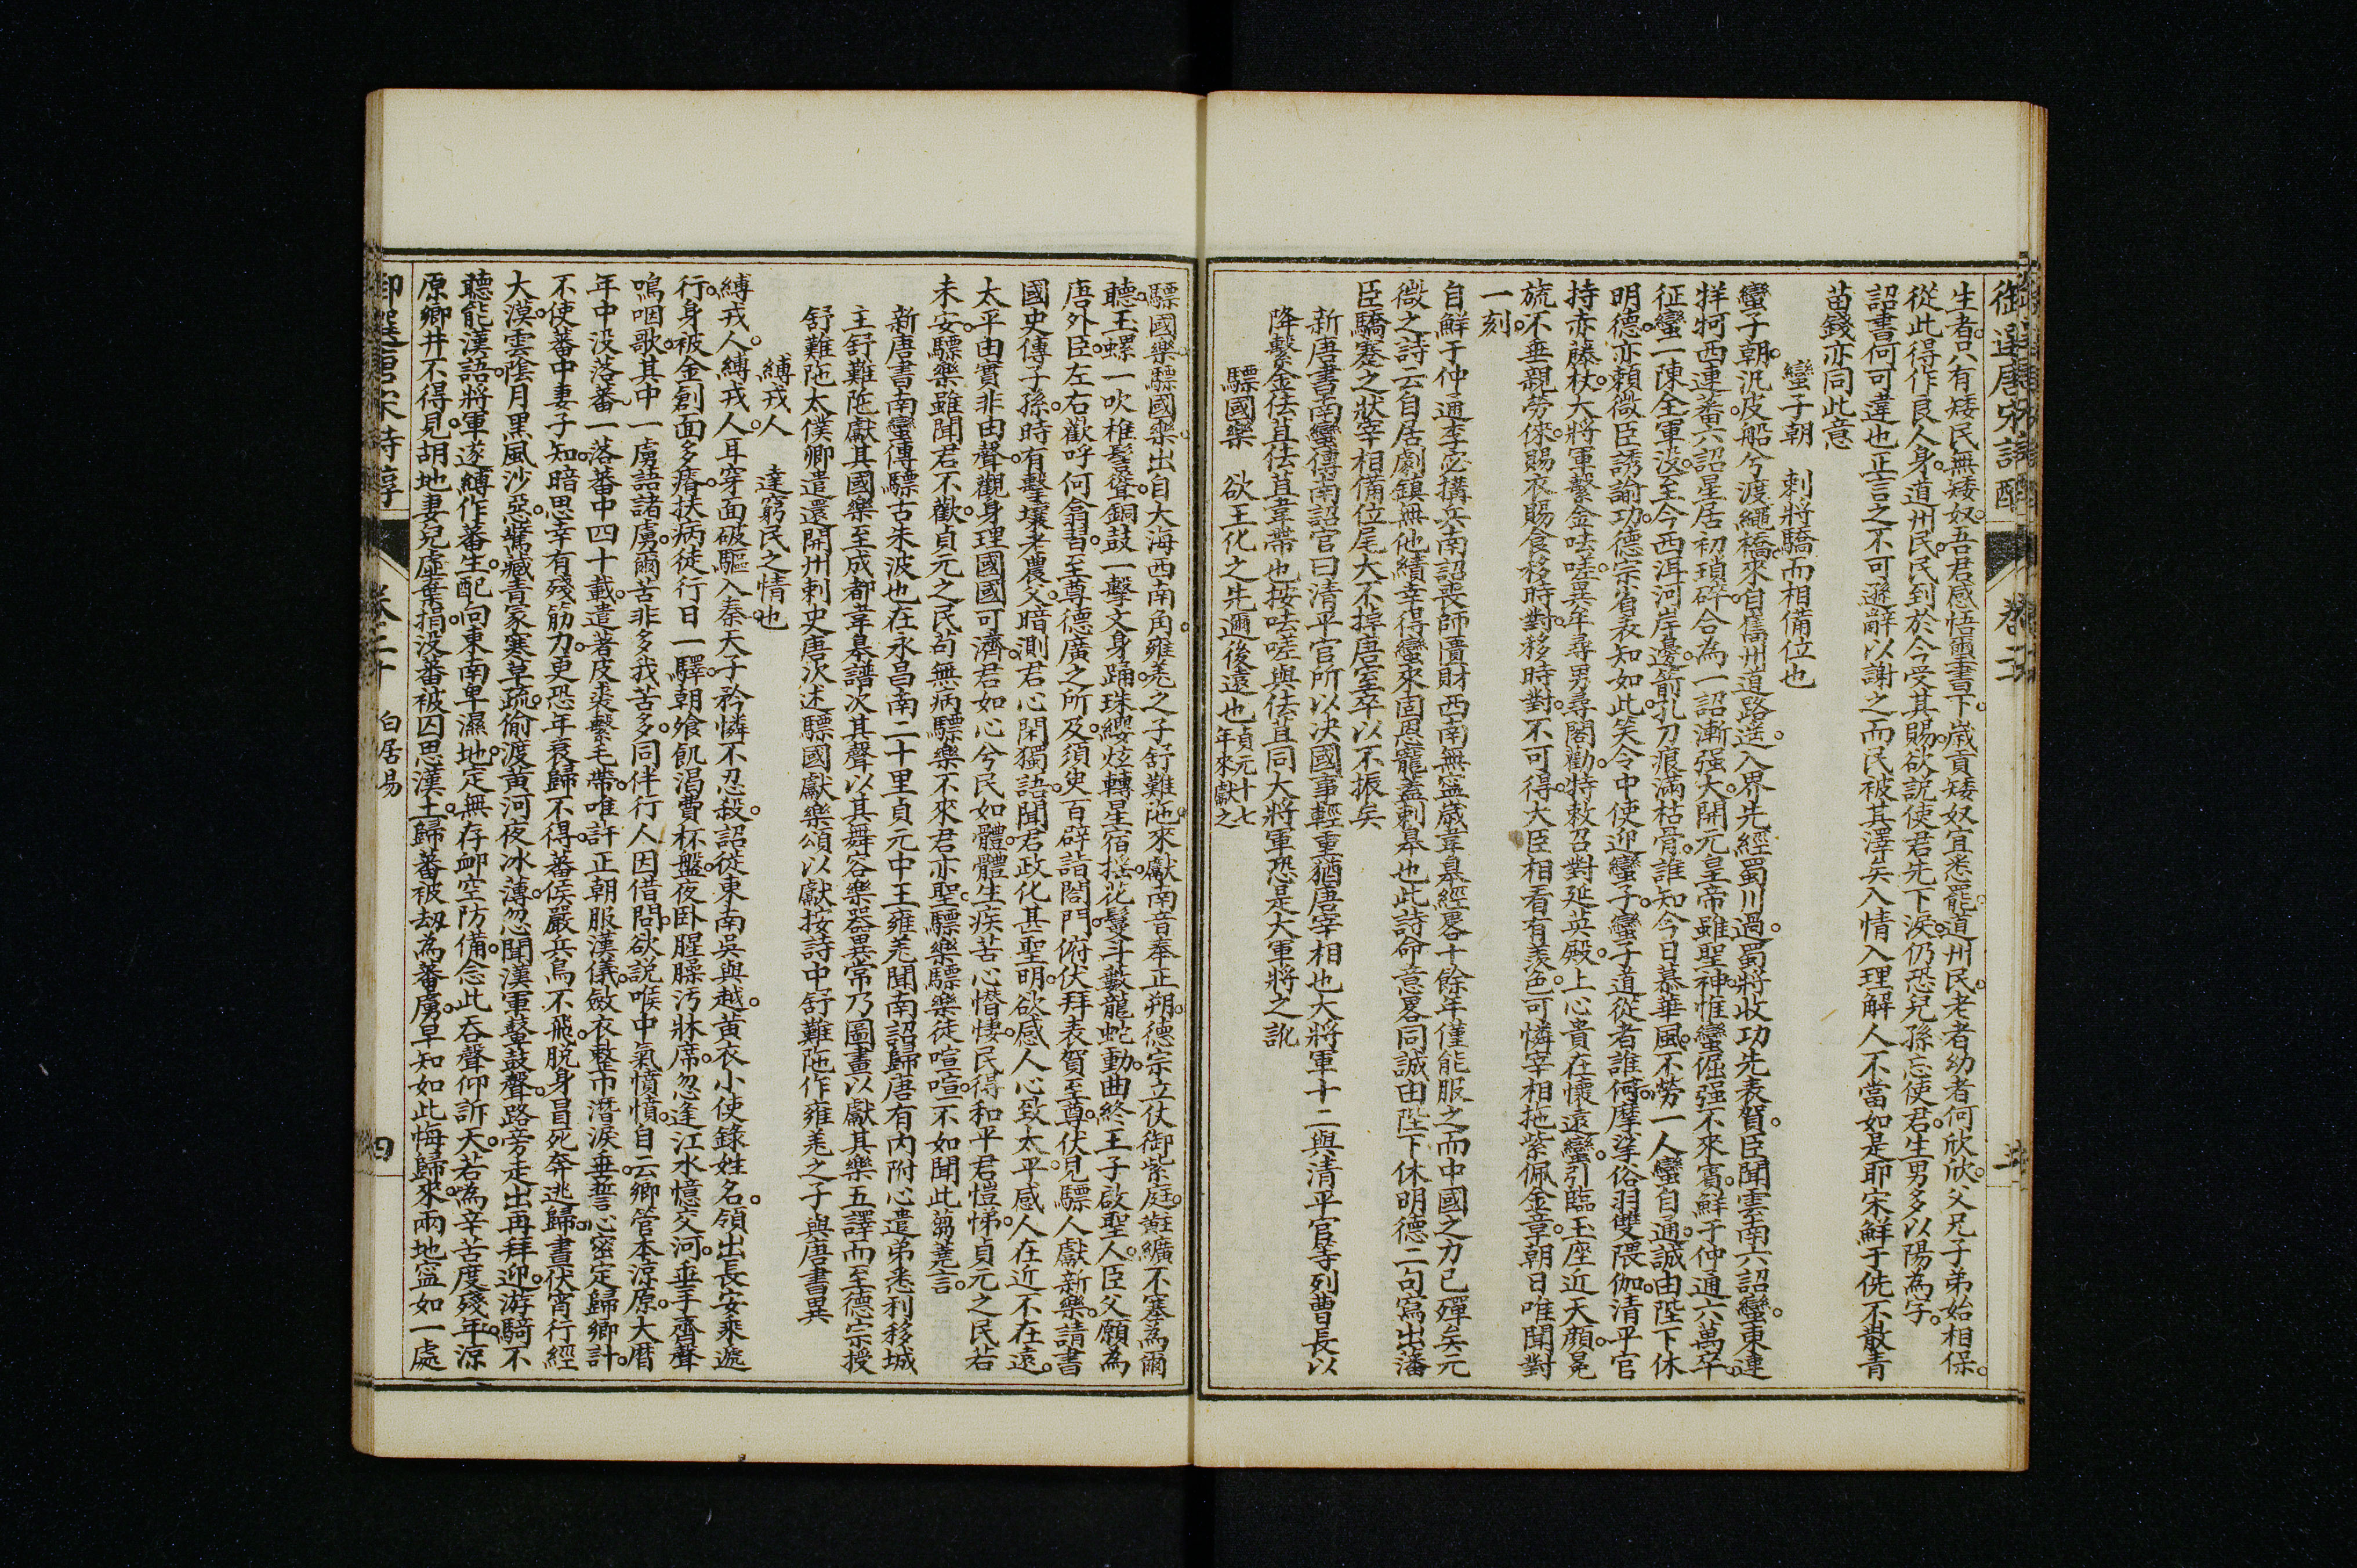 御選唐宋詩醇 卷二十
生者只有矮民無矮奴吾君感悟璽書下歲貢矮奴宜悉罷道州民老者幼者何欣欣父兄子弟始相保
從此得作良人身道州民民到於今受其賜欲說使君先下淚仍恐兒孫忘使君生男多以陽為字
詔書何可違也正言之不可遜辭以謝之而民被其澤矣入情入理解人不當如是耶宋鮮于侁不散青
苗錢亦同此意
蠻子朝 刺將驕而相備位也
蠻子朝汎皮船兮渡繩橋來自巂州道路遙入界先經蜀川過蜀將收功先表賀臣聞雲南六詔蠻東連
牂牁西連蕃六詔星居初瑣碎合為一詔漸强大開元皇帝雖聖神惟蠻倔强不來賓鮮于仲通六萬卒
征蠻一陳全軍沒至今西洱河岸邊箭孔刀痕滿枯骨誰知今日慕華風不勞一人蠻自通誠由陛下休
明德亦賴微臣誘諭功德宗省表知如此笑令中使迎蠻子蠻子道從者誰何摩挲俗羽雙隈伽清平官
持赤藤杖大將軍繫金呿嗟異牟尋男尋閣勸特敕召對延英殿上心貴在懷遠蠻引臨玉座近天顏冕
旒不垂親勞倈賜衣賜食移時對移時對不可得大臣相看有羨色可憐宰相拖紫佩金章朝日唯聞對
一刻
自鮮于仲通李宓搆兵南詔喪師匱財西南無寧歲韋臯經畧十餘年僅能服之而中國之力已殫矣元
微之詩云自居劇鎮無他績幸得蠻來固恩寵蓋刺臯也此詩命意畧同誠由陛下休明德二句寫出藩
臣驕蹇之狀宰相備位尾大不掉唐室卒以不振矣
新唐書南蠻傳南詔官曰清平官所以決國事輕重猶唐宰相也大將軍十二與清平官等列曹長以
降繫金佉苴佉苴韋帶也按呿嗟與佉苴同大將軍恐是大軍將之訛
驃國樂 欲王化之先邇後遠也貞元十七年來獻之
驃國樂驃國樂出自大海西南角雍羌之子舒難陁來獻南音奉正朔德宗立仗御紫庭黈纊不塞為爾
聽玉螺一吹椎髻聳銅鼓一擊文身踊珠纓炫轉星宿搖花鬘斗藪龍蛇動曲終王子啟聖人臣父願為
唐外臣左右歡呼何翕習至尊德廣之所及須臾百辟詣閤門俯伏拜表賀至尊伏見驃人獻新樂請書
國史傳子孫時有擊壤老農父暗測君心閑獨語聞君政化甚聖明欲感人心致太平感人在近不在遠
太平由實非由聲觀身理國國可濟君如心兮民如體體生疾苦心憯悽民得和平君愷悌貞元之民若
未安驃樂雖聞君不歡貞元之民苟無病驃樂不來君亦聖驃樂驃樂徒喧喧不如聞此芻蕘言
新唐書南蠻傳驃古朱波也在永昌南二十里貞元中王雍羌聞南詔歸唐有內附心遣弟悉利移城
主舒難陁獻其國樂至成都韋臯譜次其聲以其舞容樂器異常乃圖畫以獻其樂五譯而至德宗授
舒難陁太僕卿遣還開州刺史唐次述驃國獻樂頌以獻按詩中舒難陁作雍羌之子與唐書異
縛戎人 達窮民之情也
縛戎人縛戎人耳穿面破驅入秦天子矜憐不忍殺詔徙東南吳與越黃衣小使錄姓名領出長安乘遞
行身被金創面多瘠扶病徒行日一驛朝飧飢渴費杯盤夜卧腥臊汚牀席忽逢江水憶交河垂手齊聲
嗚咽歌其中一虜語諸虜爾苦非多我苦多同伴行人因借問欲說喉中氣憤憤自云鄉管本涼原大厯
年中没落蕃一落蕃中四十載遣著皮裘繫毛帶唯許正朝服漢儀斂衣整巾潛淚垂誓心密定歸鄉計
不使蕃中妻子知暗思幸有殘筋力更恐年衰歸不得蕃侯嚴兵鳥不飛脫身冒死奔逃歸晝伏宵行經
大漠雲陰月黑風沙惡驚臧青冢寒草疏偷渡黃河夜冰薄忽聞漢軍鼙鼓聲路旁走出再拜迎游騎不
聽能漢語將軍遂縛作蕃生配向東南卑濕地定無存䘏空防備念此吞聲仰訴天若為辛苦度殘年涼
原鄉井不得見胡地妻兒虛棄捐没蕃被囚思漢土歸蕃被刼為蕃虜早知如此悔歸來兩地寧如一處
御選唐宋詩醇 卷二十 白居易 四